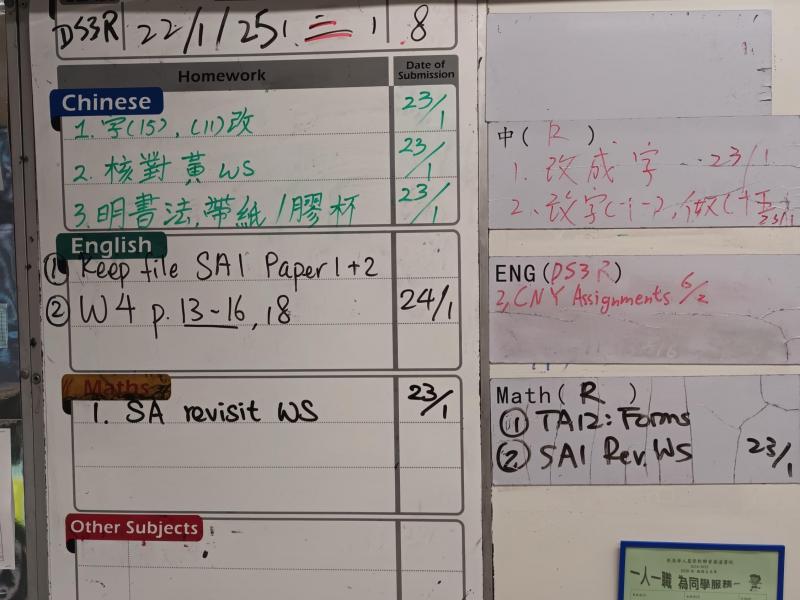 DS3R 22/1/25 二 18
Homework Date of Submission
Chinese
1. 字(15), (11)改 23/1
2. 核對黃 WS 23/1
3. 明書法, 帶紙/膠杯 23/1
English
① Keep file SA1 Paper 1+2
② W4 p. 13-16, 18 24/1
Maths
1. SA revisit WS 23/1
Other Subjects
中( R )
1. 改成字 23/1
2. 改字(十一), 做(十五) 23/1
ENG(DS3R)
2, CNY Assignments 6/2
Math( R )
① TA12: Forms
② SA1 Rev. WS 23/1
一人一職 為同學服務